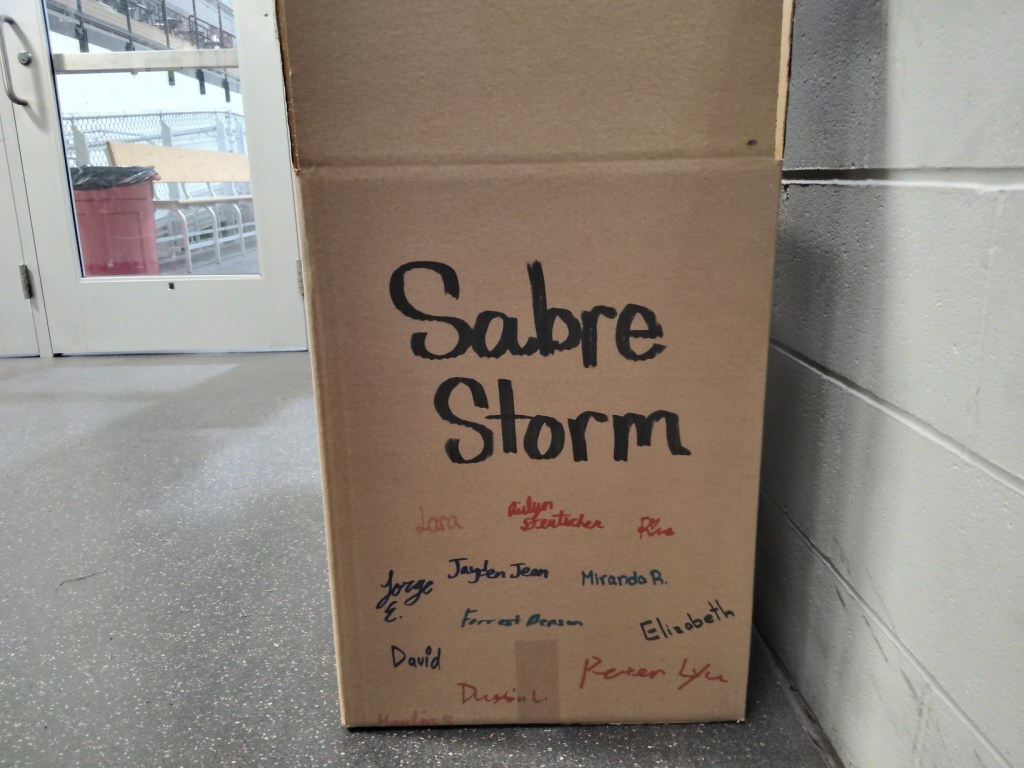 Sabre
Storm
Lara
Ailyn
Deutscher
Jayden Jean
Miranda R.
Jorge
E.
Forrest Benson
Elizabeth
David
Peter Lyu
Dustin L.